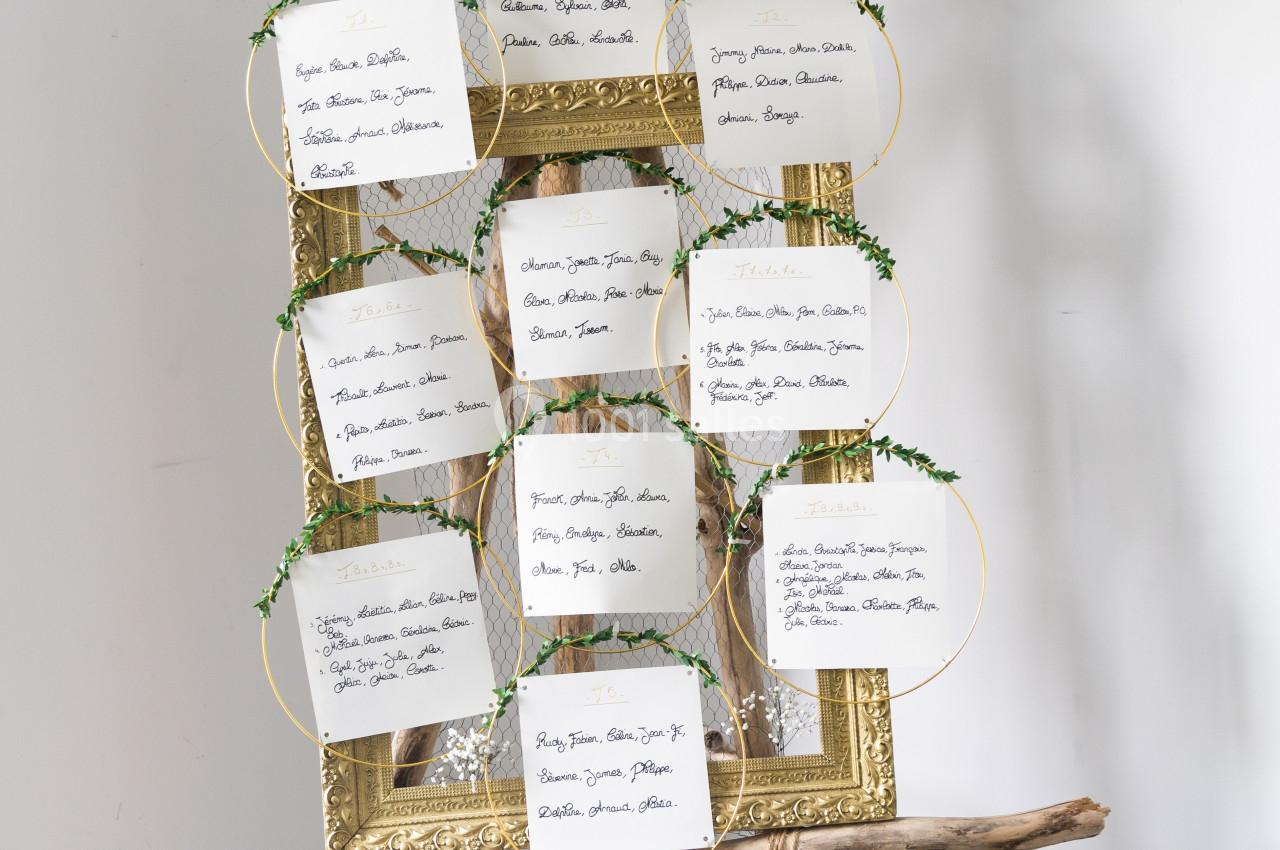 T1.
Eugène, Claude, Delphine,
Tata Christiane, Jérôme,
Stéphanie, Arnaud, Mélissande,
Christophe.
Guillaume, Sylvain,
Pauline, Cachou,
T2.
Jimmy, Nadine, Marc, Dalila,
Philippe, Didier, Claudine,
Amiani, Soraya.
T3.
Maman, Josette, Tania, Guy,
Clara, Nicolas, Rose-Marie,
Sliman, Tissem.
T6.1,6.2.
1. Quentin, Léna, Simon, Barbara,
Thibault, Laurent, Marie.
2. Pépito, Laëtitia, Sandra,
Philippe, Vanessa.
Julien, Eloïse, Milou, Pom,
5. Flo, Alex, Fabrice, Géraldine, Jérôme,
Charlotte.
6. Marine, Alex, David, Charlotte,
Frédérika, Jeff.
T4.
Franck, Annie, Johan, Laura,
Rémy, Emelyne, Sébastien,
Marie, Fred, Milo.
1001 salles
1. Linda, Christophe, Jessica, François,
Maeva, Jordan
2. Angélique, Nicolas, Titou,
Isis, Michaël.
3. Nicolas, Vanessa, Charlotte, Philippe,
Julie, Cédric.
Jérémy, Laëtitia, Lilian, Céline, Peggy,
Seb.
Michaël, Vanessa, Géraldine, Cédric.
5. Cyril, Juju, Julie, Alex,
Alix, Carotte.
T5.
Rudy, Fabien, Céline, Jean-Fi,
Séverine, James, Philippe,
Delphine, Arnaud, Nastia.